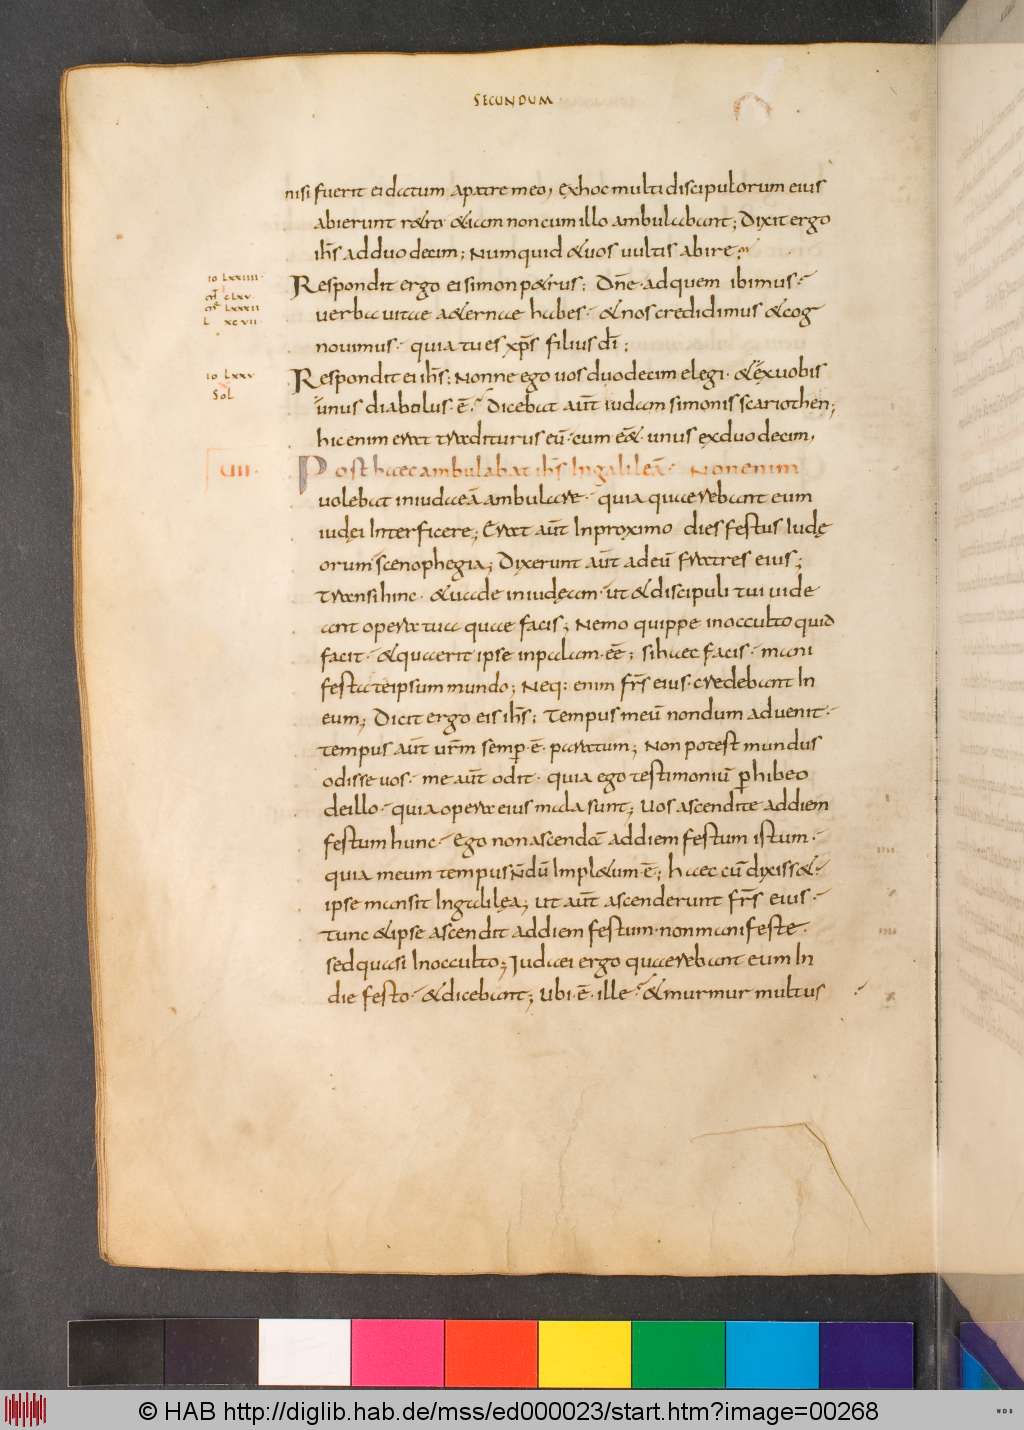 SECUNDUM
nisi fuerit ei datum apatre meo, exhoc multi discipulorum eius
abierunt retro &iam non cum illo ambulabant; Dixit ergo
ih̅s ad duodecim; Numquid &uos uultis abire?
io lxxiiii·
mt clxv
mr lxxxii
l xcvii
Respondit ergo ei simon p&rus; Dn̅e· ad quem ibimus·
uerba uitae a&ernae habes· &nos credidimus &cog
nouimus· quia tu es xp̅s filius dī;
io lxxv
Sol
Respondit ei ih̅s; Nonne ego uos duodecim elegi· &exuobis
unus diabolus· ē· Dicebat aūt iudam simonis scariothen;
hic enim erat traditurus eū· cum ess&· unus ex duodecim,
VII·
Post haec ambulabat ih̅s In galileā· Non enim
uolebat in iudaeā ambulare· quia quaerebant eum
iudęi Interficere; Erat aūt In proximo dies festus Iudę
orum scenophegia; Dixerunt aūt ad eū fratres eius;
Transi hinc· &uade in iudęam· ut &discipuli tui uide
ant opera tua quae facis; Nemo quippe in occulto quid
facit· &quaerit ipse in palam· eē; si haec facis· mani
festa te ipsum mundo; Neq: enim fr̅s eius· credebant In
eum; Dicit ergo eis ih̅s; Tempus meū nondum aduenit·
tempus aūt ur̅m semp· ē· paratum; Non potest mundus
odisse uos· me aūt odit· quia ego testimoniū p̱hibeo
de illo· quia opera eius mala sunt; Uos ascendite ad diem
festum hunc· Ego non ascendā ad diem festum istum·
quia meum tempus Ndū Impl&um· ē; haec cū dixiss&·
ipse mansit In galilęa; ut aūt ascenderunt fr̅s eius·
tunc &ipse ascendit ad diem festum· non manifeste·
sed quasi In occulto; Iudaei ergo quaerebant eum In
die festo· &dicebant; Ubi· ē· ille· &murmur multus
© HAB http://diglib.hab.de/mss/ed000023/start.htm?image=00268